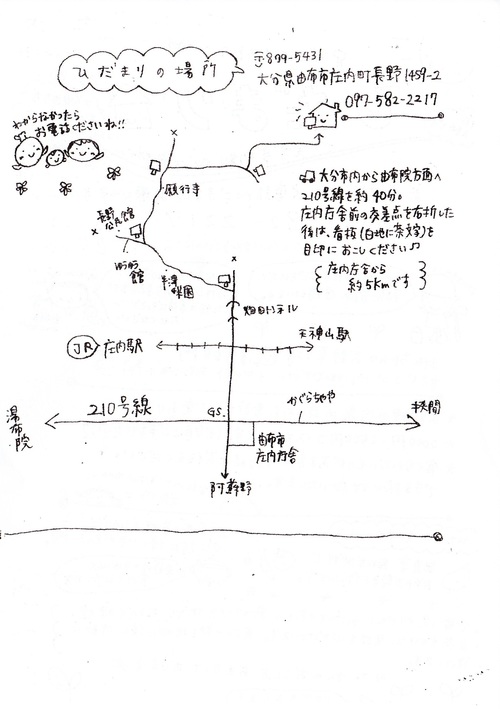 ひだまりの場所
〒879-5431
大分県由布市庄内町長野1459-2
097-582-2217
わからなかったら
お電話くださいね!!
大分市内から由布院方面へ
210号線を約40分。
庄内庁舎前の交差点を右折した
後は、看板(白地に茶文字)を
目印に おこしください♫
庄内庁舎から
約5kmです
願行寺
長野
公民館
ゆうゆう
館
半澤
梨園
畑田トンネル
JR 庄内駅
天神山駅
210号線
GS.
かぐらちゃや
挾間
湯布院
由布市
庄内庁舎
阿蘇野